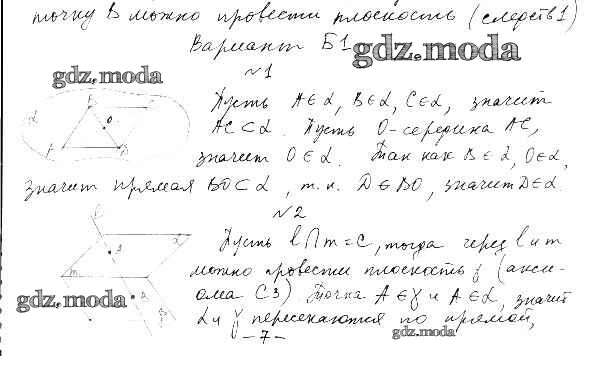 точку B можно провести плоскость (следств 1)
Вариант Б1
gdz.moda
№1
gdz.moda
Пусть A∈α, B∈α, C∈α, значит
AC⊂α. Пусть O-середина AC,
значит O∈α. Так как B∈α, O∈α,
значит прямая BO⊂α, т.к. D∈BO, значит D∈α.
№2
Пусть l∩m=C, тогда через l и m
можно провести плоскость γ (акси-
ома C3) Точка A∈γ и A∈α, значит
gdz.moda
α и γ пересекаются по прямой,
gdz.moda
-7-